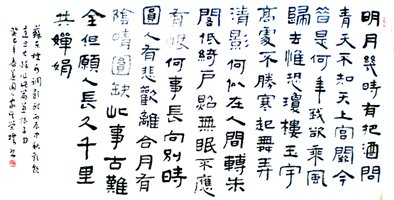 明月幾時有把酒問
青天不知天上宮闕今
昔是何年我欲乘風
歸去惟恐瓊樓玉宇
高處不勝寒起舞弄
清影何似在人間轉朱
閣低綺戶照無眠不應
有恨何事長向別時
圓人有悲歡離合月有
陰晴圓缺此事古難
全但願人長久千里
共嬋娟
調歌頭丙辰中秋歡飲
達旦大醉作此篇兼懷子由